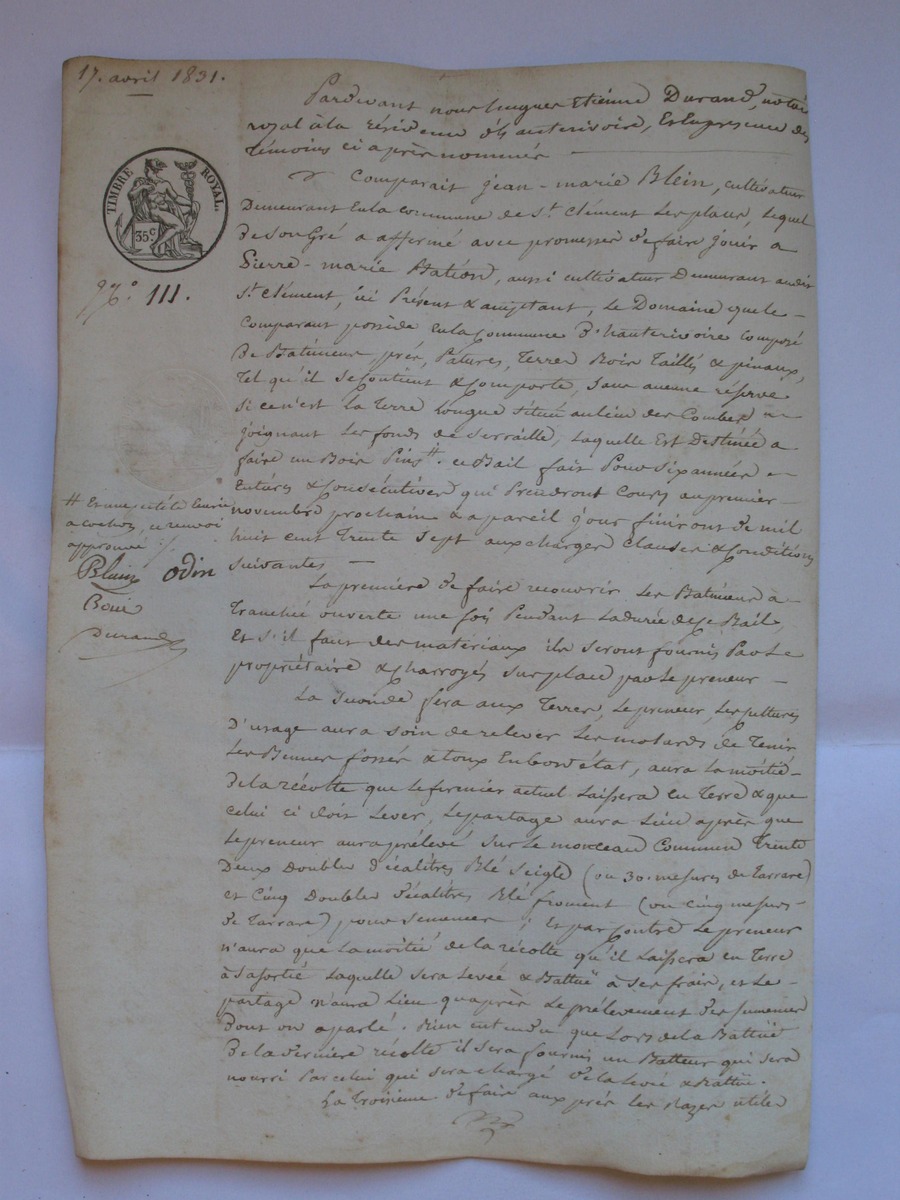 17. avril 1831.
Pardevant nous hugues Etienne Durand, notaire
royal à la résidence d'hauterivoire, Et En presence des
Témoins ci après nommés
Comparait jean-marie Blein, cultivateur
Demeurant En la commune de St. Clément Les places, Lequel
De Son Gré a affermé avec promesse de faire jouir a
Pierre-marie Bation, aussi cultivateur Demeurant audit
St. Clément, ici Présent & acceptant, Le Domaine que le
Comparant possède En la Commune D'hauterivoire Composé
De Batimens, prés, Patures, Terres Bois Taillés & pinaux,
Tel qu'il Se Contient & Comporte, Sans aucune réserve
Si ce n'est La Terre Longue Située au lieu des Combes
joignant Les fonds de Serraille, Laquelle Est Destinée a
faire un Bois Pins #. ce Bail fait Pour Six années
Entières & Consécutives qui Prendront Cours au premier
novembre prochain & a pareil jour finiront de mil
huit cent Trente Sept aux charges Clauses & Conditions
Suivantes
La première de faire recouvrir Les Batimens à
Tranchée ouverte une fois Pendant La durée de ce Bail,
Et S'il faut des matériaux ils Seront fournis Par Le
propriétaire & charroyés Sur place par Le preneur
La Seconde fera aux Terres, Le preneur, Les cultures
D'usage aura Soin de relever Les de Tenir
Les fossés & Toux En bon état, aura La moitié
De la récolte que Le fermier actuel Laissera En Terre & que
Celui ci doit Lever, Le partage aura Lieu après que
Le preneur aura prélevé Sur Le monceau Commun Trente
Deux Doubles Décalitres Blé Seigle (ou 30. mesures de Tarrare)
et Cinq Doubles décalitres Blé froment (ou cinq mesures
de Tarrare) pour Semences; Et par Contre Le preneur
n'aura que La moitié de la récolte qu'il Laissera en Terre
à Sa Sortie Laquelle Sera Levée & Battuë à Ses frais, et Le
partage n'aura Lieu qu'après Le prélevement des Semences
Dont on a parlé. Bien entendu que Lors de la Battuë
De la dernière récolte il Sera fourni un Batteur qui Sera
nourri Par celui qui Sera chargé de la Levée & Battuë.
La Troisieme de faire aux prés Les Razes utiles
TIMBRE ROYAL.
35 c
No. 111.
# Et une petite
a , ce renvoi
approuvé ./.
Blein Odin
Boui
Durand